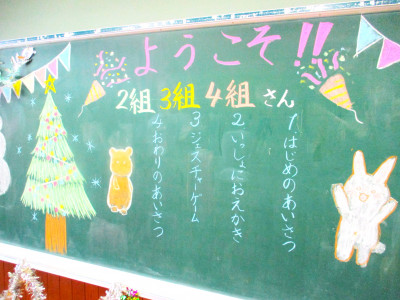 ようこそ!!
2組 3組 4組 さん
1.はじめのあいさつ
2.いっしょにおえかき
3.ジェスチャーゲーム
4.おわりのあいさつ